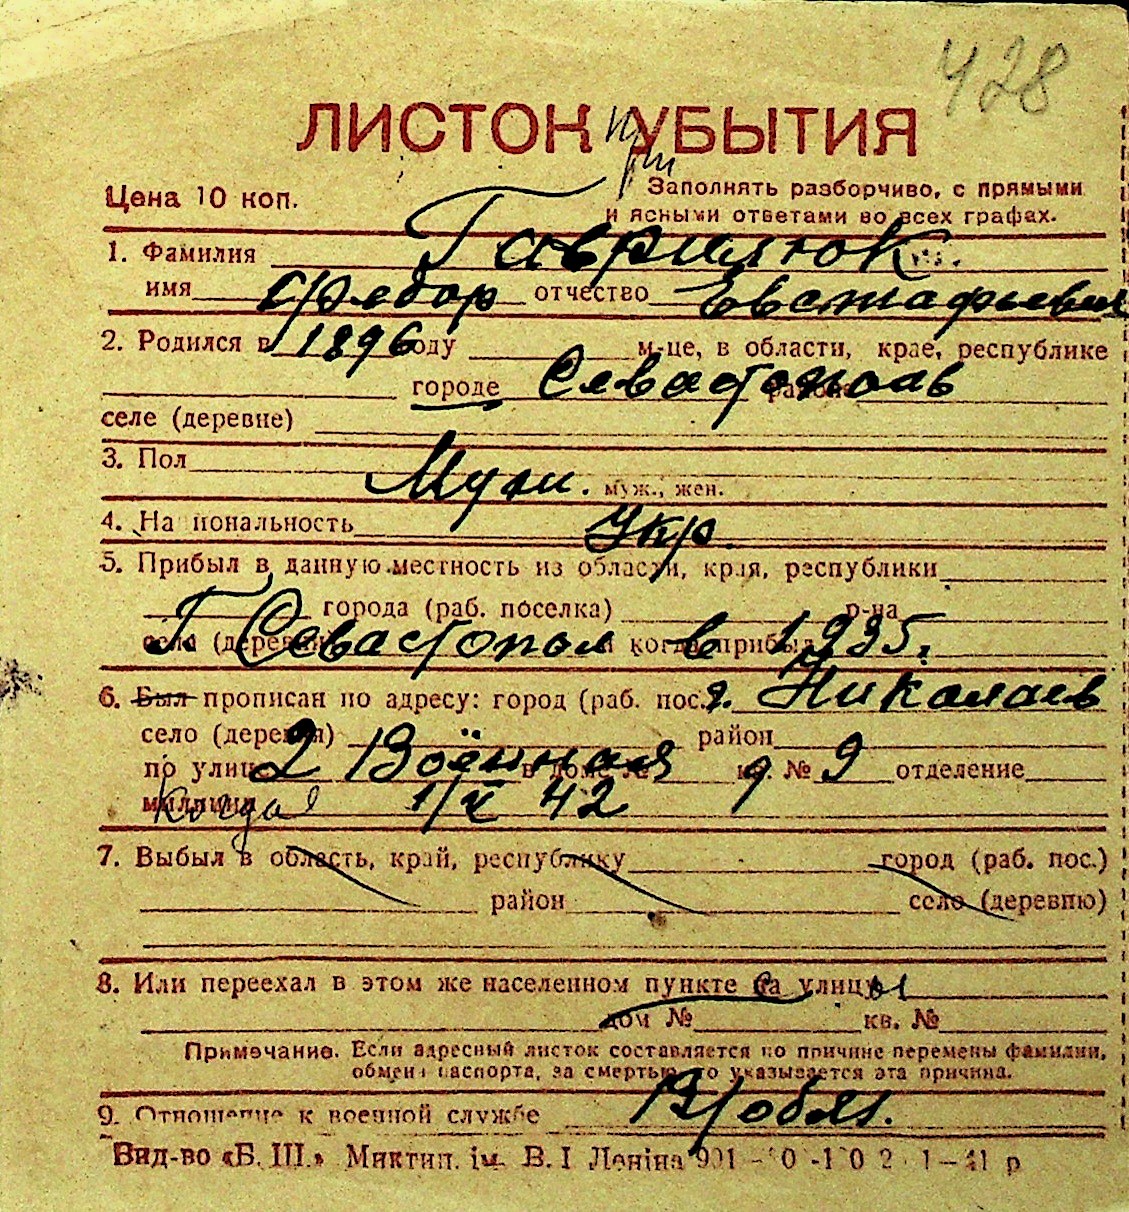 428
ЛИСТОК УБЫТИЯ
при
Цена 10 коп.
Заполнять разборчиво, с прямыми
и ясными ответами во всех графах.
1. Фамилия Гаврилюк
имя Федор отчество Евстафьевич
2. Родился в 1896 году м-це, в области, крае, республике
городе Севастополь районе
селе (деревне)
3. Пол Муж. муж., жен.
4. Национальность Укр.
5. Прибыл в данную местность из области, края, республики
города (раб. поселка) р-на
села (деревни) г. Севастопол и когда прибыл в 1935г.
6. Был прописан по адресу: город (раб. пос.) г. Николаев
село (деревня) район
по улице 2 Военная в доме № 9 кв. № 9 отделение
милиции Когда 1/V 42
7. Выбыл в область, край, республику город (раб. пос.)
район село (деревню)
8. Или переехал в этом же населенном пункте на с улицу ы
дом № кв. №
Примечание. Если адресный листок составляется по причине перемены фамилии,
обмена паспорта, за смертью, то указывается эта причина.
9. Отношение к военной службе В/обяз.
Вид-во «Б. Ш.» Миктип. ім. В. І Леніна